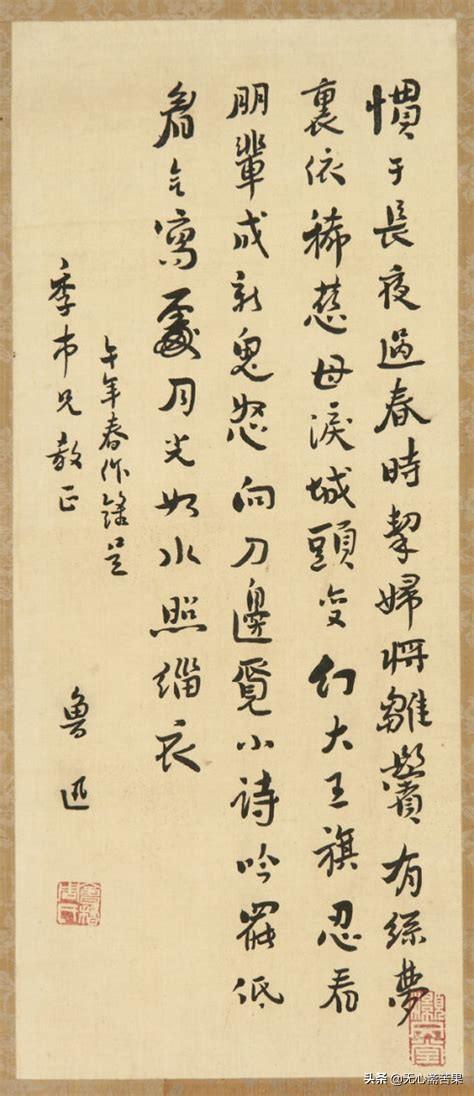 慣于長夜過春時挈婦將雛鬢有絲夢
裏依稀慈母淚城頭變幻大王旗忍看
朋輩成新鬼怒向刀邊覓小詩吟罷低
眉无寫處月光如水照緇衣
午年春作錄呈
季市兄教正
魯迅
头条 @无心斋苦果